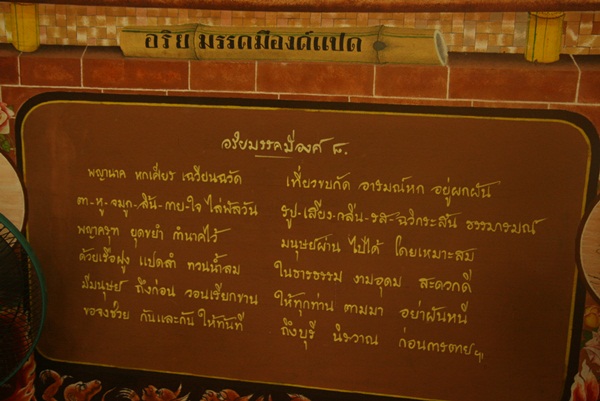 อริย มรรคมีองค์แปด
อริยมรรคมีองค์ ๘.
พญานาค หกเศียร เฉวียนฉวัด เที่ยวขบกัด อารมณ์หก อยู่ผกผัน
ตา-หู-จมูก-ลิ้น-กาย-ใจ ไล่พัลวัน รูป-เสียง-กลิ่น-รส-ฉวีกระสัน ธรรมารมณ์
พญาครุฑ ยุดขยำ กำนาคไว้ มนุษย์ผ่าน ไปได้ โดยเหมาะสม
ด้วยเรือฝูง แปดลำ ทวนน้ำลม ในธารธรรม งามอุดม สะดวกดี
มีมนุษย์ ถึงก่อน วอนเรียกขาน ให้ทุกท่าน ตามมา อย่าผันหนี
ขอจงช่วย กันและกัน ให้ทันที ถึงบุรี นิรวาณ ก่อนการตาย ฯ